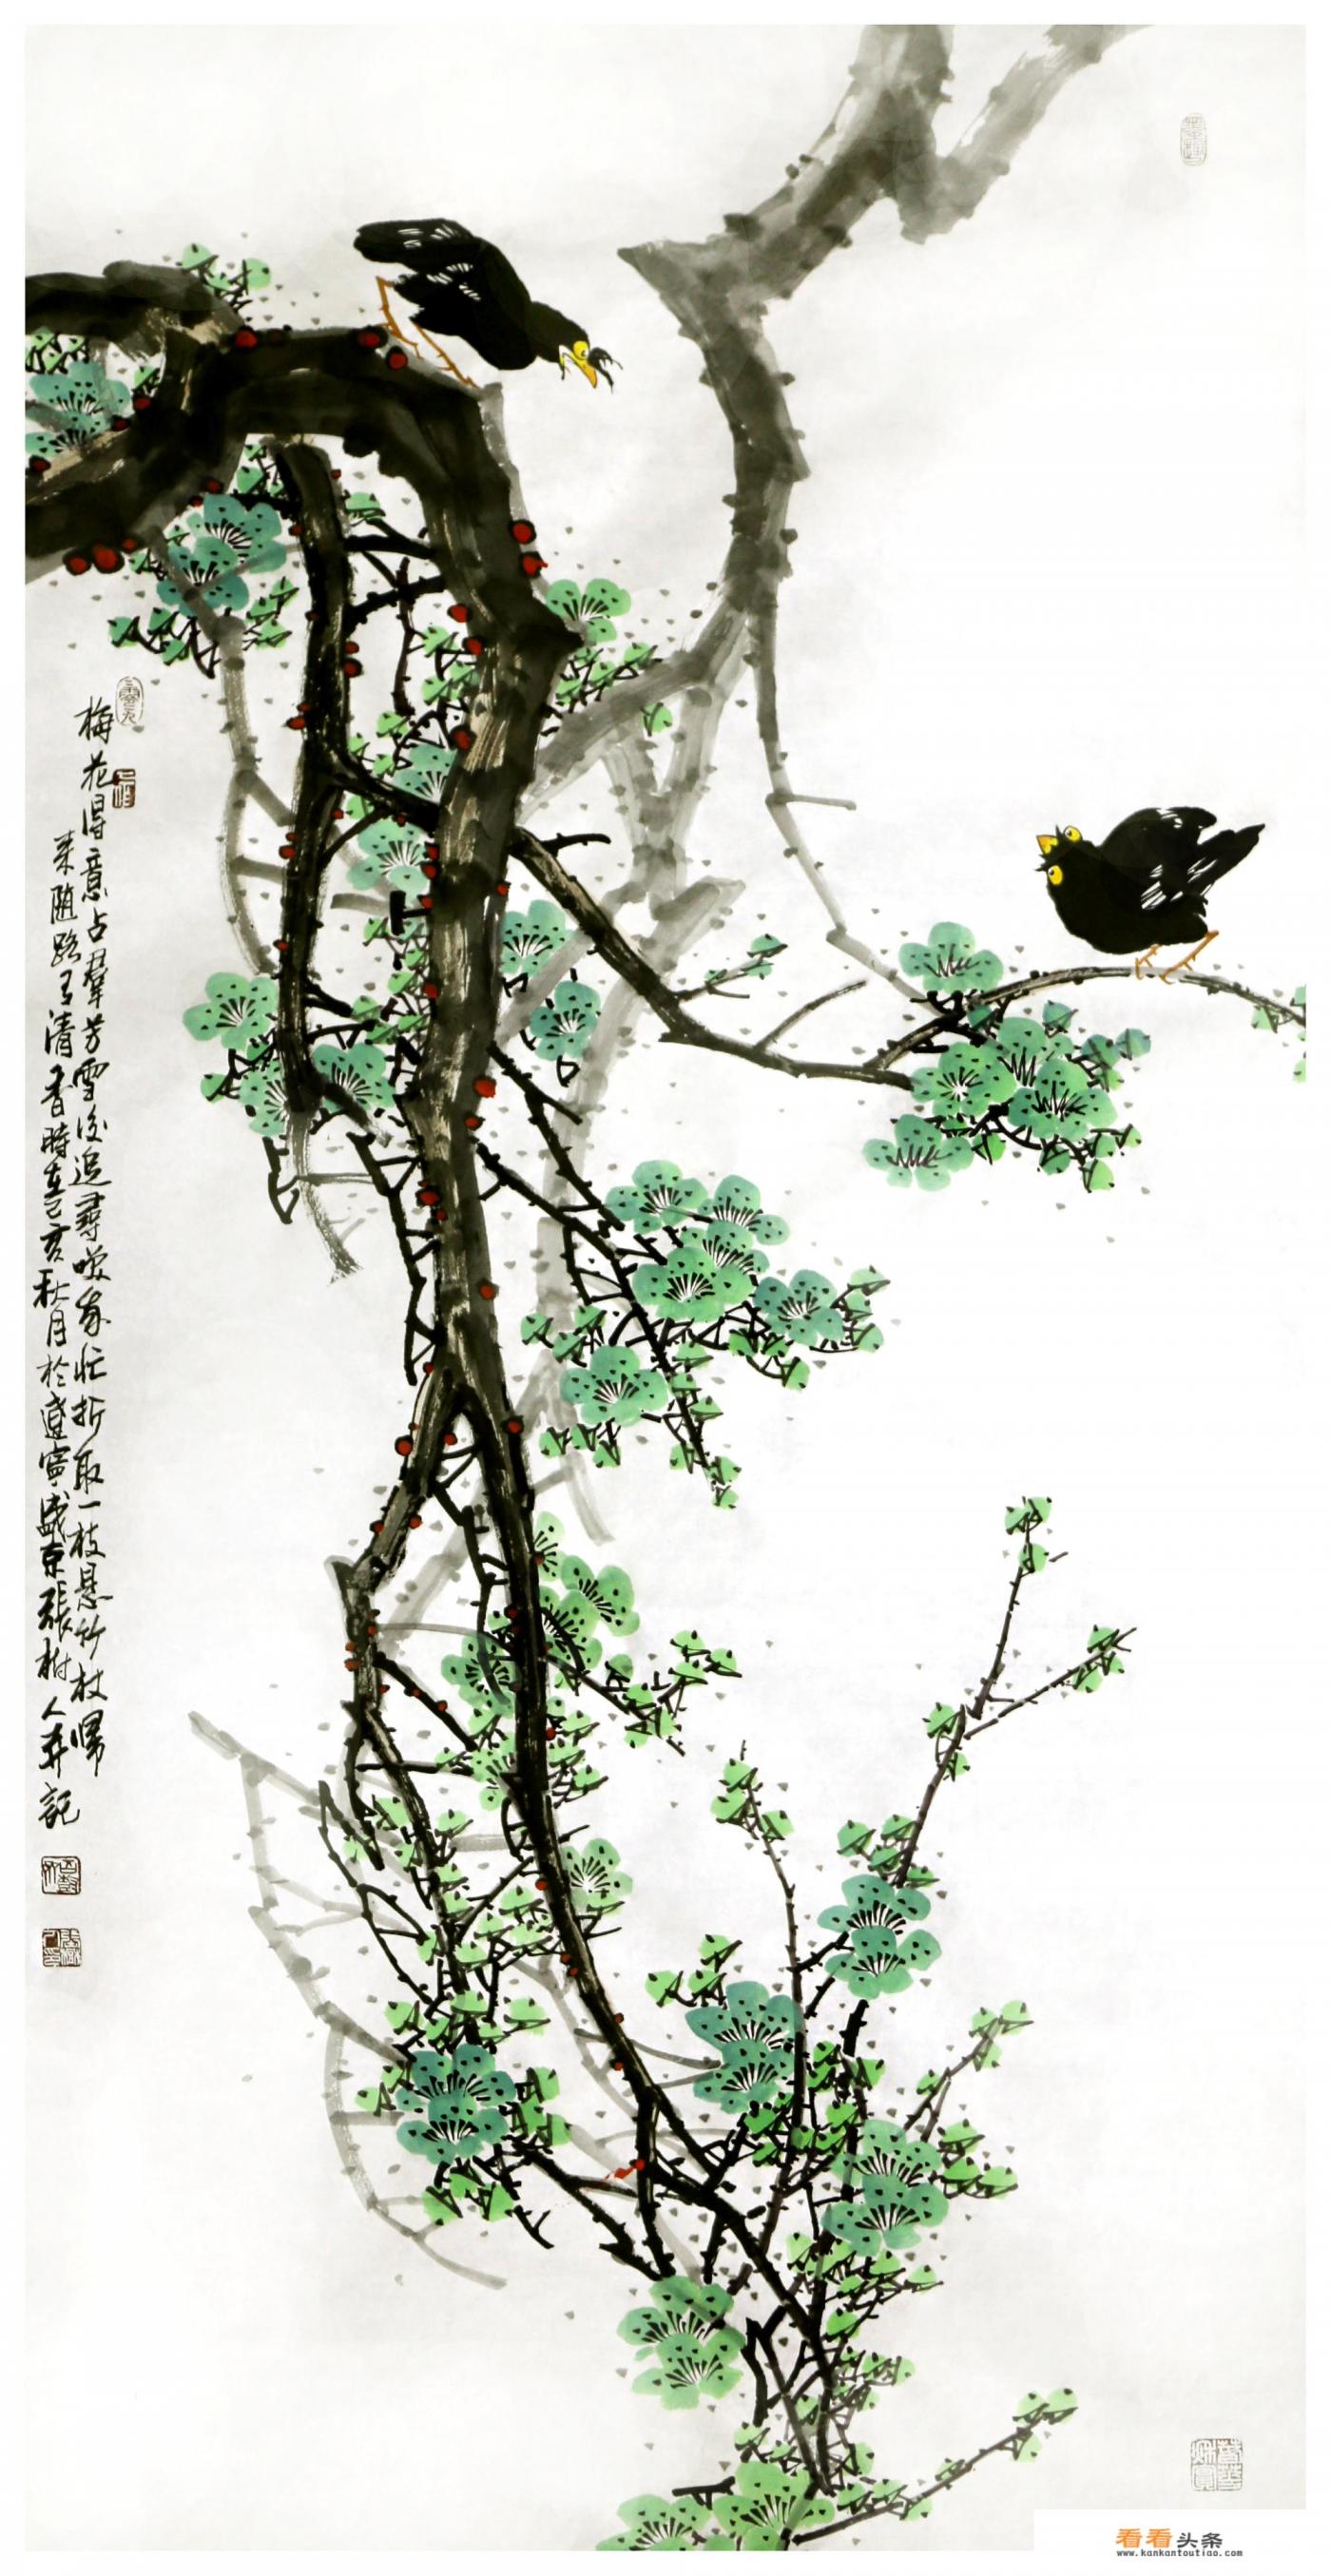 梅花得意占群芳雪后追尋嘆我忙折取一枝悬竹杖归
来随路有清香時在己亥秋月於遼寧盛京張樹人并記
看看头条
www.kankantoutiao.com